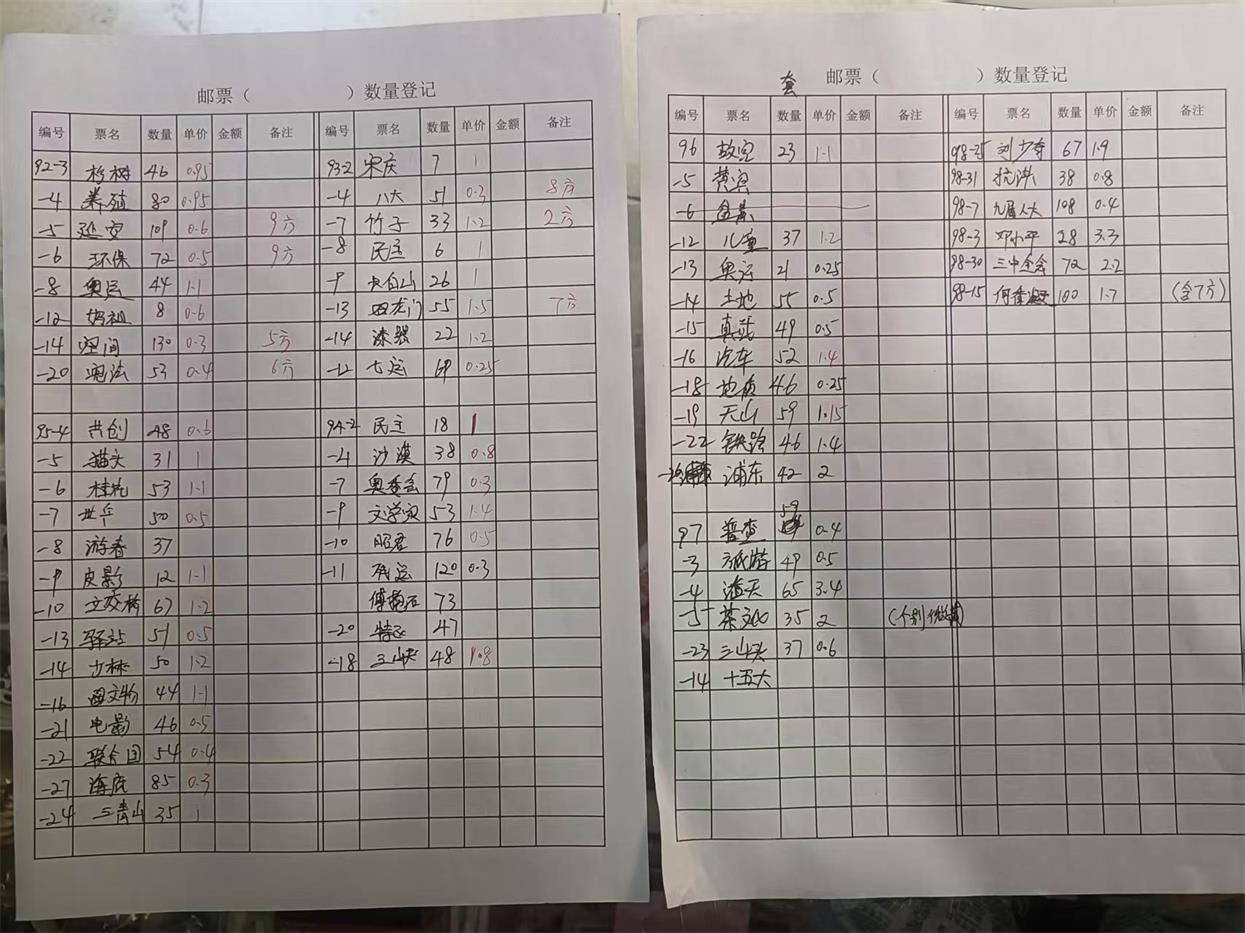 邮票（ ）数量登记
编号 票名 数量 单价 金额 备注 编号 票名 数量 单价 金额 备注
92-3 杉树 46 0.95 93-2 宋庆 7 1
-4 养殖 80 0.95 -4 八大 51 0.3 8方
-5 延安 109 0.6 9方 -7 竹子 33 1.2 2方
-6 环保 72 0.5 9方 -8 民主 6 1
-8 奥运 44 1.1 -9 长白山 26 1
-12 妈祖 8 0.6 -13 四龙门 55 1.5 7方
-14 空间 130 0.3 5方 -14 漆器 22 1.2
-20 宪法 53 0.4 6方 -12 七运 69 0.25
95-4 共创 48 0.6 94-2 民主 18 1
-5 猫头 31 1 -4 沙漠 38 0.8
-6 桂花 53 1.1 -7 奥委会 79 0.3
-7 世乒 50 0.5 -9 文学家 53 1.4
-8 游春 37 -10 昭君 76 0.5
-9 皮影 12 1.1 -11 残运 120 0.3
-10 立交桥 67 1.2 傅抱石 73
-13 驿站 51 0.5 -20 特区 47
-14 少林 50 1.2 -18 三峡 48 1.8
-16 文物 44 1.1
-21 电影 46 0.5
-22 联合国 54 0.4
-27 海底 85 0.3
-24 三清山 35 1
套 邮票（ ）数量登记
编号 票名 数量 单价 金额 备注 编号 票名 数量 单价 金额 备注
96 故宫 23 1.1 98-25 刘少奇 67 1.9
-5 黄宾 98-31 抗洪 38 0.8
-6 盆景 98-7 九届人大 108 0.4
-12 儿童 37 1.2 98-3 邓小平 28 3.3
-13 奥运 21 0.25 98-30 三中全会 72 2.2
-14 土地 55 0.5 98-15 何香凝 100 1.7 (含7方)
-15 49 0.5
-16 汽车 52 1.4
-18 地质 46 0.25
-19 天山 59 1.15
-22 铁路 46 1.4
浦东 42 2
97 普查 59 0.4
-3 旅游 49 0.5
-4 潘天 65 3.4
-5 茶文化 35 2
-23 三峡 37 0.6
-14 十五大